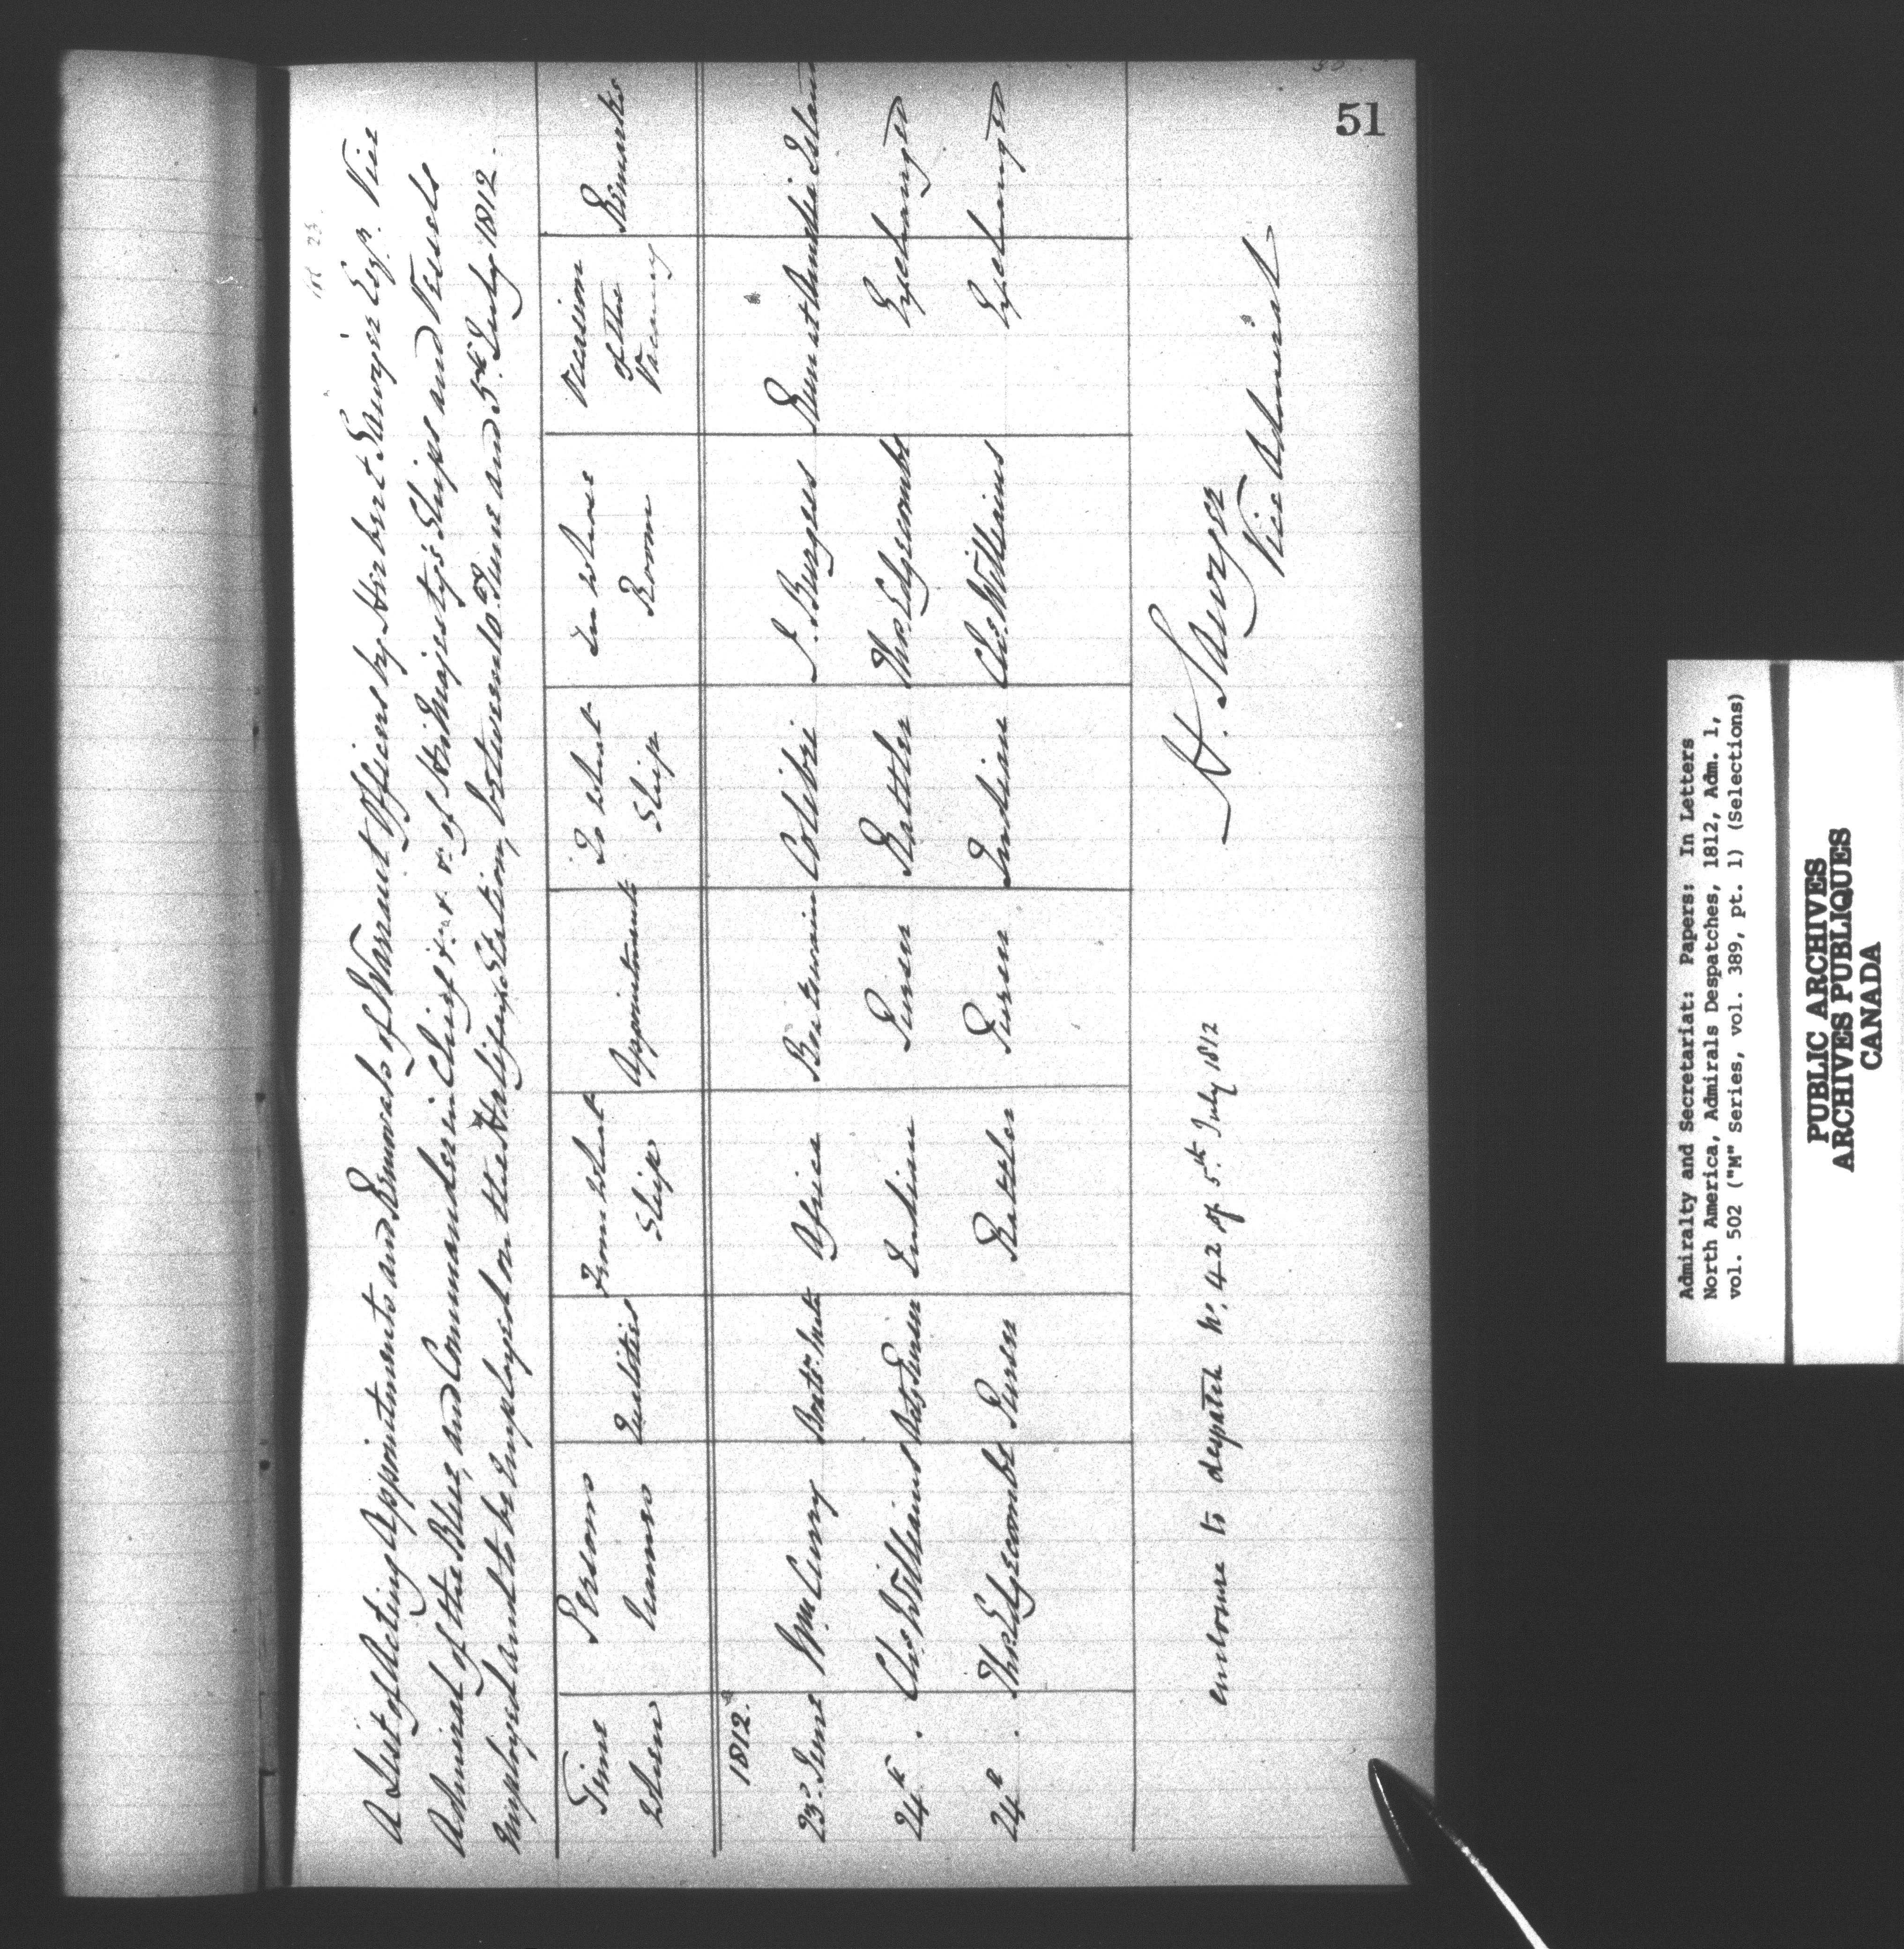 51
A List of Acting Appointments and Removals of Warrant Officers by Herbert Sawyer Esqr. Vice
Admiral of the Blue, and Commander in Chief &c. &c. &c. of His Majesty's Ships and Vessels
Employed and to be Employed on the Halifax Station, between 10th June and 5th July 1812.
Time when | Persons Names | Qualities | From what Ship | Appointments | To what Ship | In whose Room | Occasion of the Vacancy | Remarks
1812.
23d June | Wm. Curry | Boats. Mate | Africa | Boatswain | Colibri | J. Burgess | Run at Amelia Island
24th . | Chs. Williams | Purser | Indian | Purser | Rattler | Thos. Edgecombe | Exchanged
24th . | Thos. Edgecombe | Purser | Rattler | Purser | Indian | Chs. Williams | Exchanged
H. Sawyer
Vice Admiral
enclosure to despatch No. 42 of 5th July 1812
Admiralty and Secretariat: Papers: In Letters
North America, Admirals Despatches, 1812, Adm. 1,
vol. 502 ("M" Series, vol. 389, pt. 1) (Selections)
PUBLIC ARCHIVES
ARCHIVES PUBLIQUES
CANADA